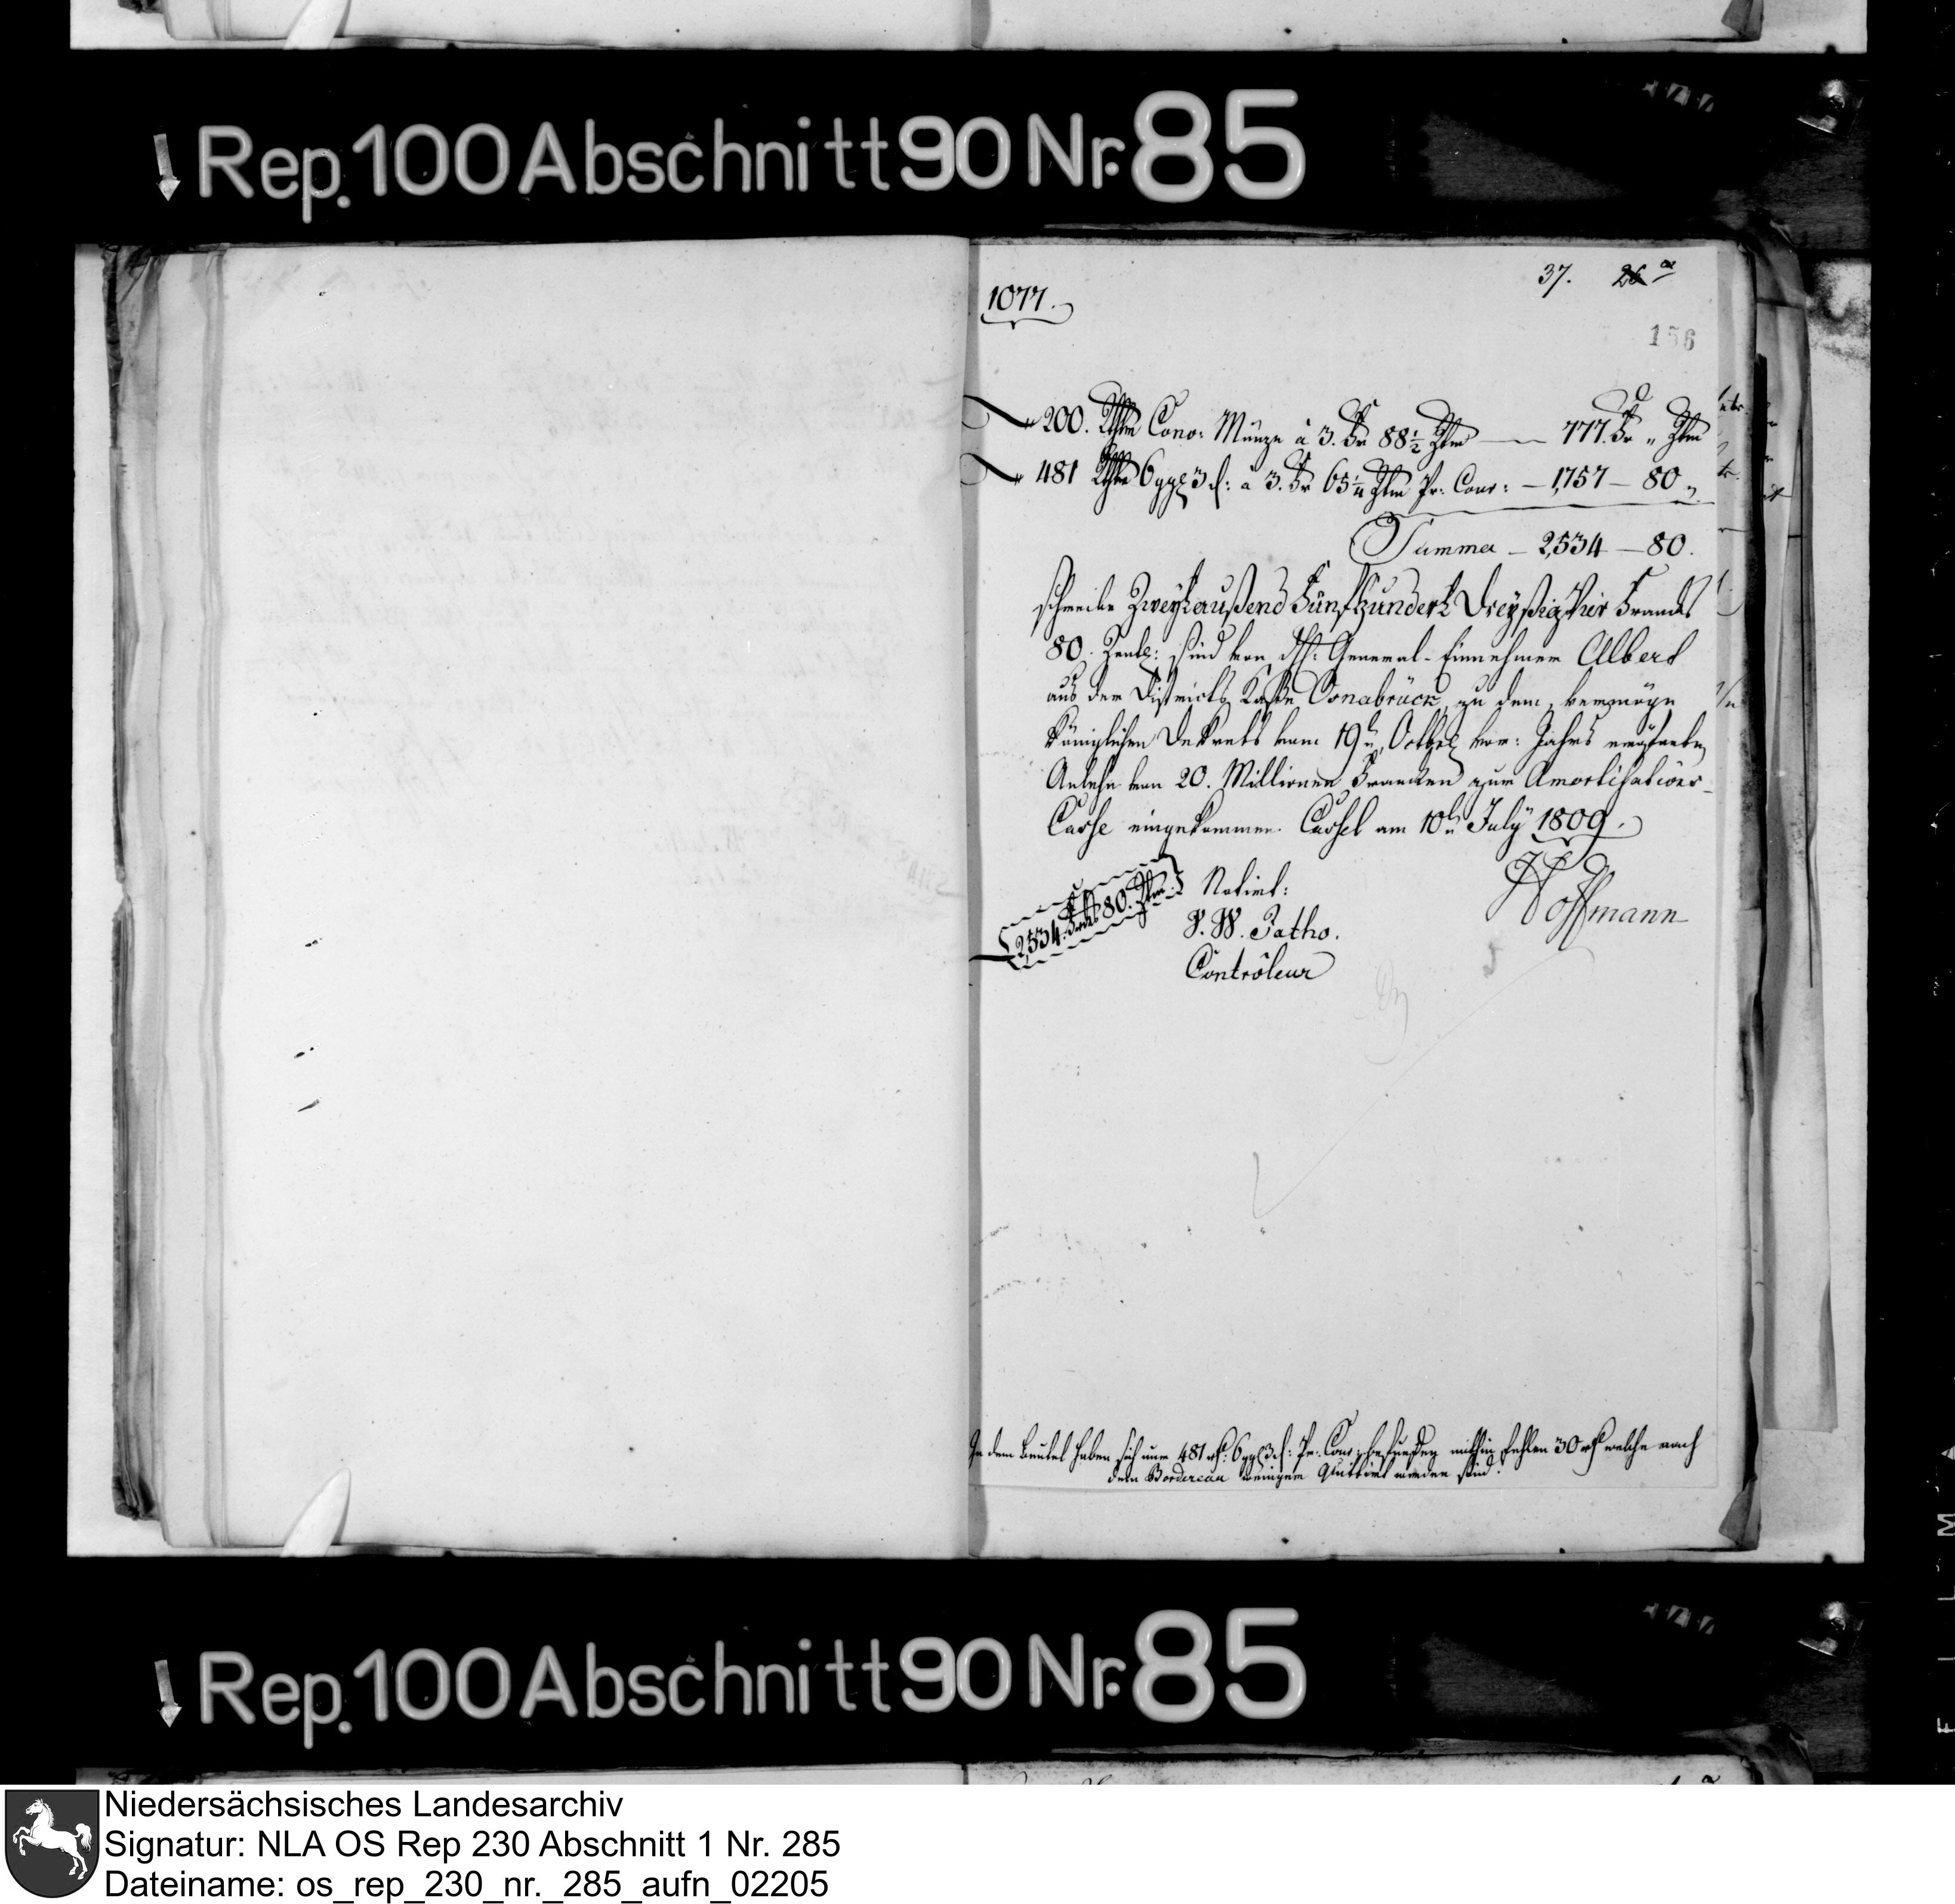 Rep. 100 Abschnitt 90 Nr. 85
1077.
37. 26 a
156
200. Rthlr Conv: Münze à 3. Fr 88 1/2 Ztm — 777. Fr " Ztm
481 Rthlr 6 ggl 3 d: à 3. Fr 65 1/4 Ztm Pr: Cour: — 1,757 — 80 "
Summa — 2,534 — 80.
schreibe Zweytaußend Fünfhundert Dreyßig Vier Francs
80. Cent: sind von dH: General-Einnehmer Albert
aus der Districts Kaße Osnabrück, zu dem, vermöge
Königlichen Dekrets vom 19ten Octbr vor: Jahrs eröfneten
Anlehn von 20. Millionen Franken zur Amortisations-
Casse eingekommen. Cassel am 10ten July 1809.
2,534. Frcs 80. Ztm.
Notirt:
V. W. Patho.
Contrôleur
Hoffmann
In dem Beutel haben sich nur 481 rt: 6 ggl 3 d: Pr: Cour: befunden mithin fehlen 30 rt welche nach
dem Bordereau weniger Quittirt worden sind.
Rep. 100 Abschnitt 90 Nr. 85
Niedersächsisches Landesarchiv
Signatur: NLA OS Rep 230 Abschnitt 1 Nr. 285
Dateiname: os_rep_230_nr._285_aufn_02205